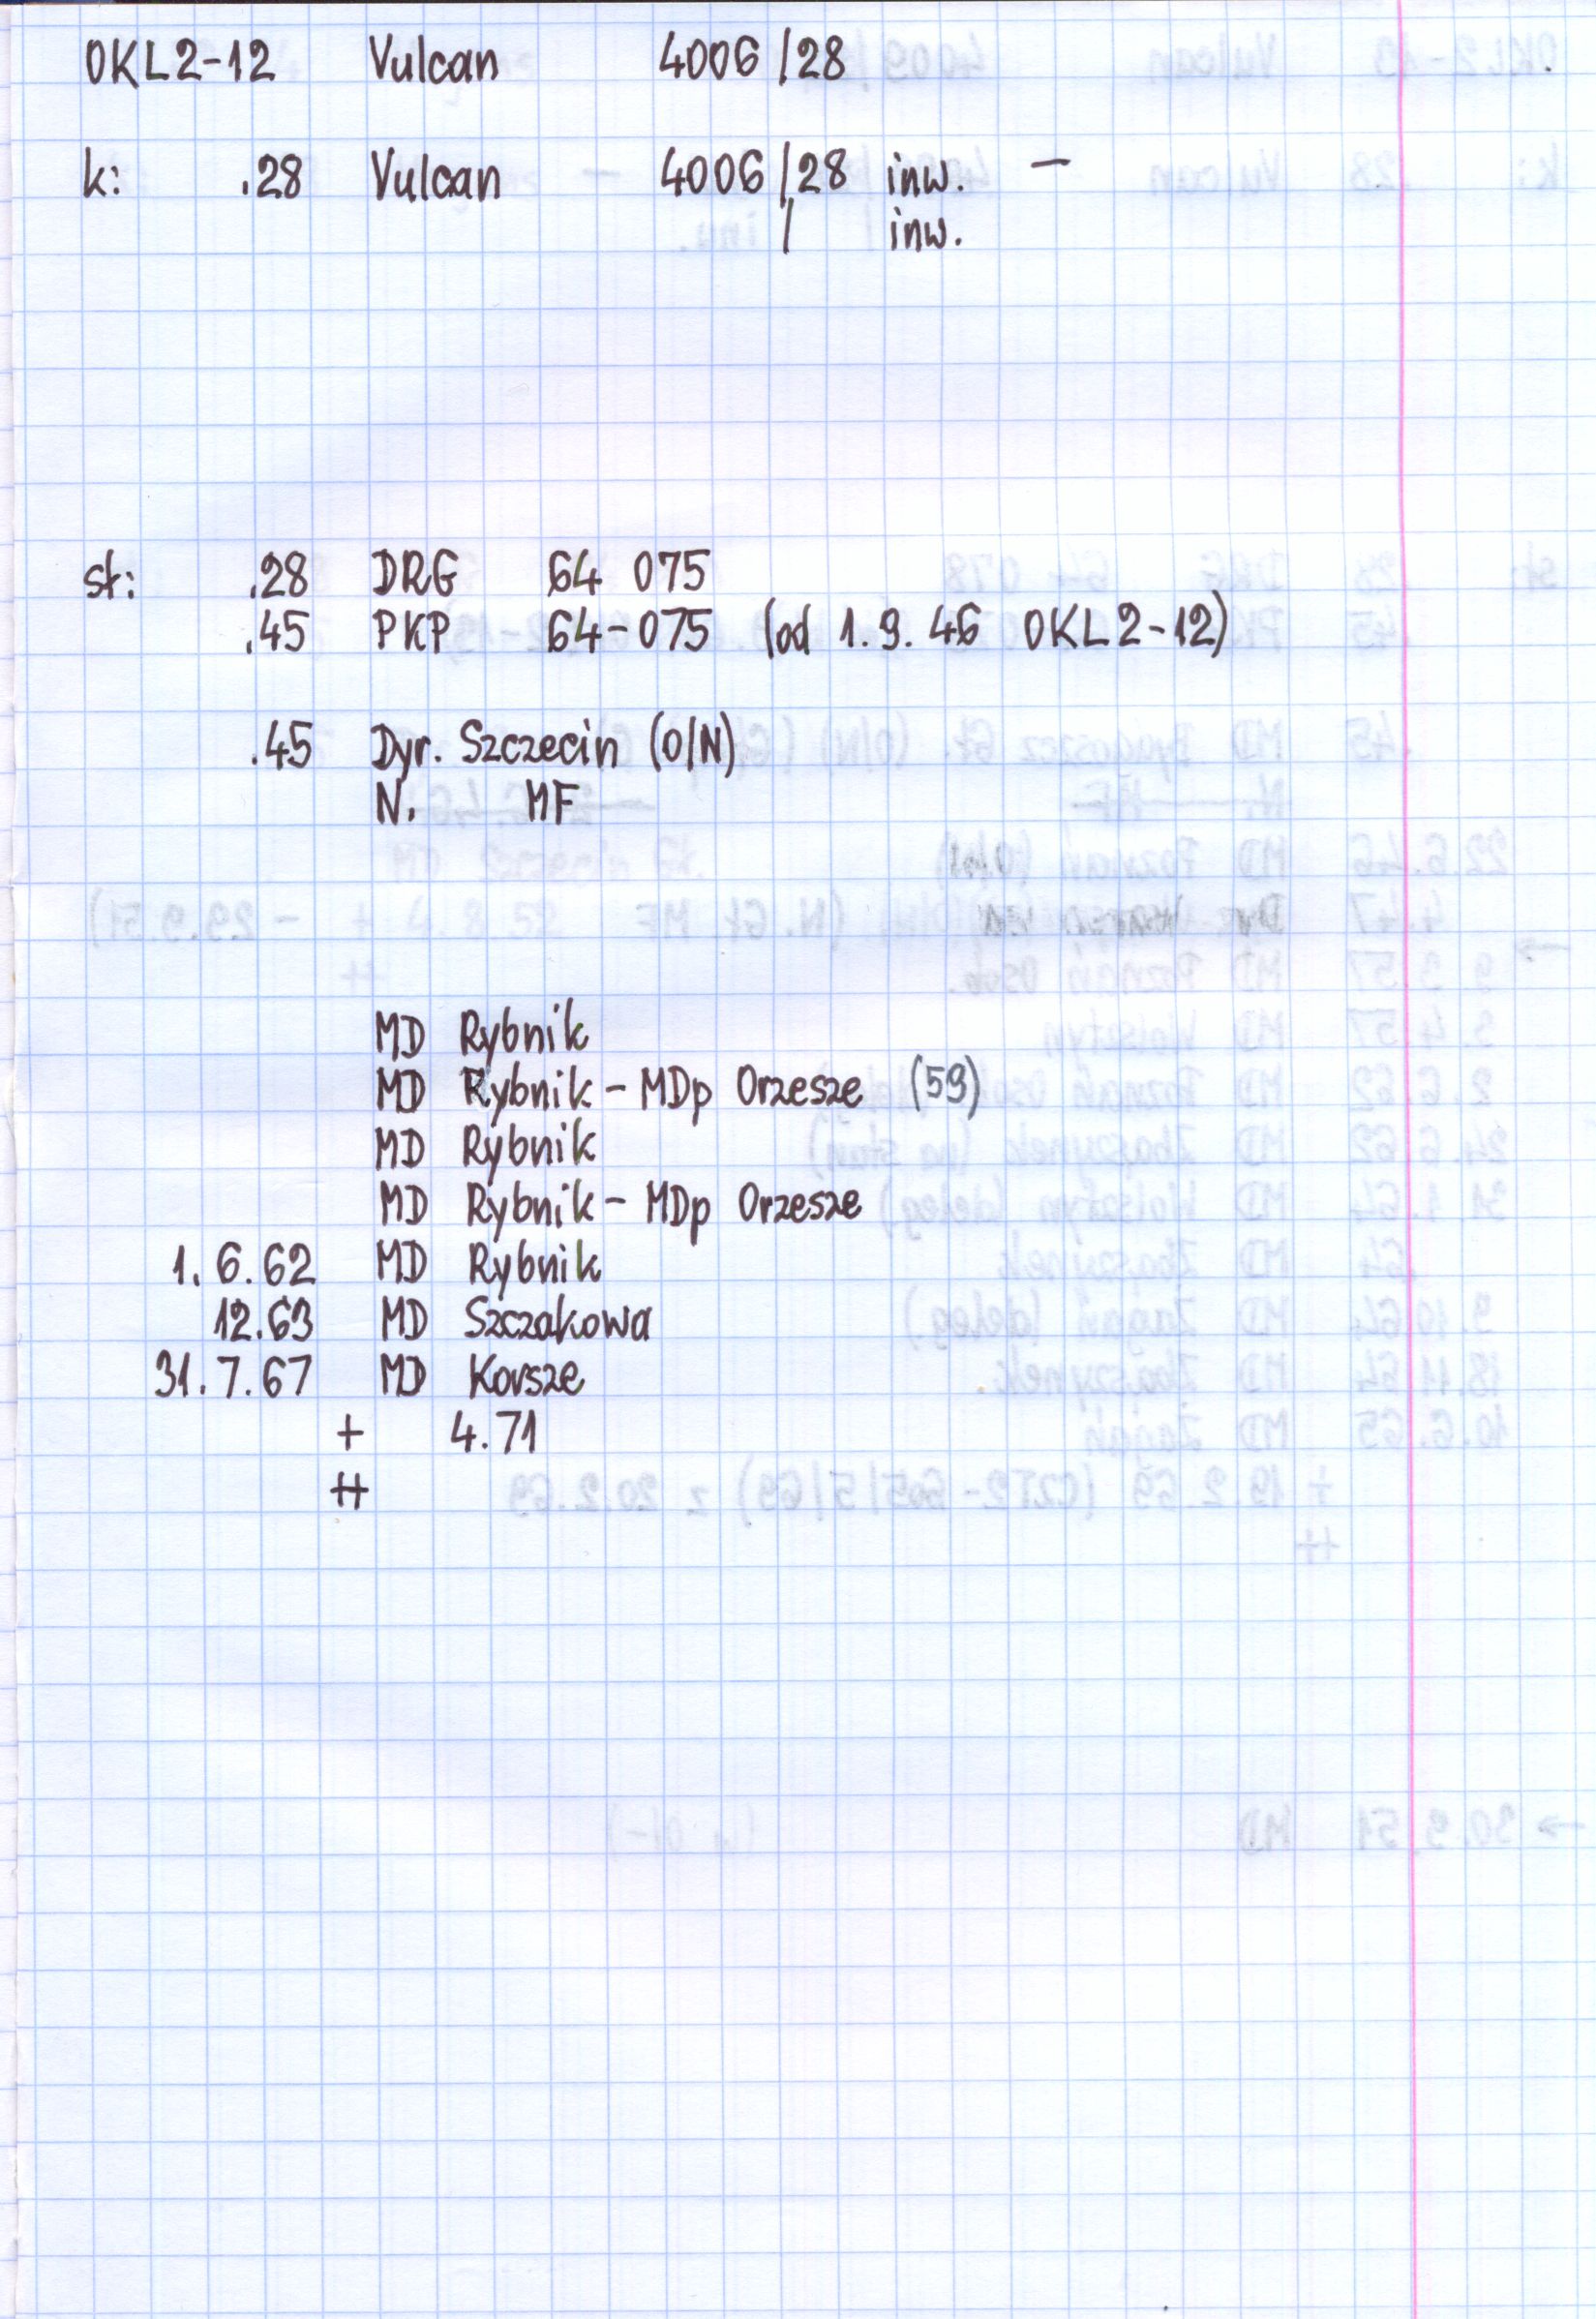 OKL2-12 Vulcan 4006/28
k: .28 Vulcan 4006/28 inw. —
/ inw.
st: .28 DRG 64 075
.45 PKP 64-075 (od 1.9.46 OKL2-12)
.45 Dyr. Szczecin (O/N)
N. MF
MD Rybnik
MD Rybnik - MDp Orzesze (59)
MD Rybnik
MD Rybnik - MDp Orzesze
1.6.62 MD Rybnik
12.63 MD Szczakowa
31.7.67 MD Korsze
+ 4.71
++